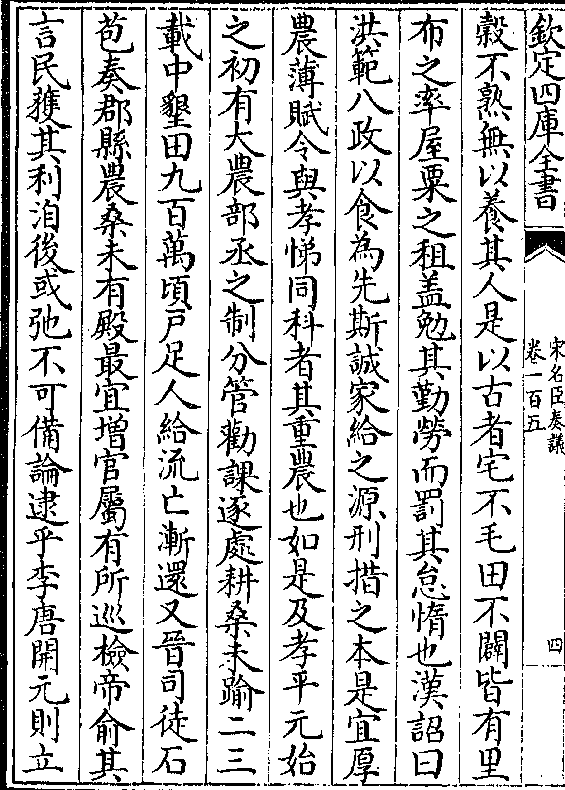 欽定四庫全書
宋名臣奏議
卷一百五
四
糓不熟無以養其人是以古者宅不毛田不闢皆有里
布之率屋粟之租盖勉其勤勞而罰其怠惰也漢詔曰
洪範八政以食為先斯誠家給之源刑措之本是宜厚
農薄賦令與孝悌同科者其重農也如是及孝平元始
之初有大農部丞之制分管勸課逐處耕桑未踰二三
載中墾田九百萬頃戸足人給流亡漸還又晉司徒石
苞奏郡縣農桑未有殿最宜増官屬有所巡檢帝俞其
言民獲其利洎後或弛不可備論逮乎李唐開元則立